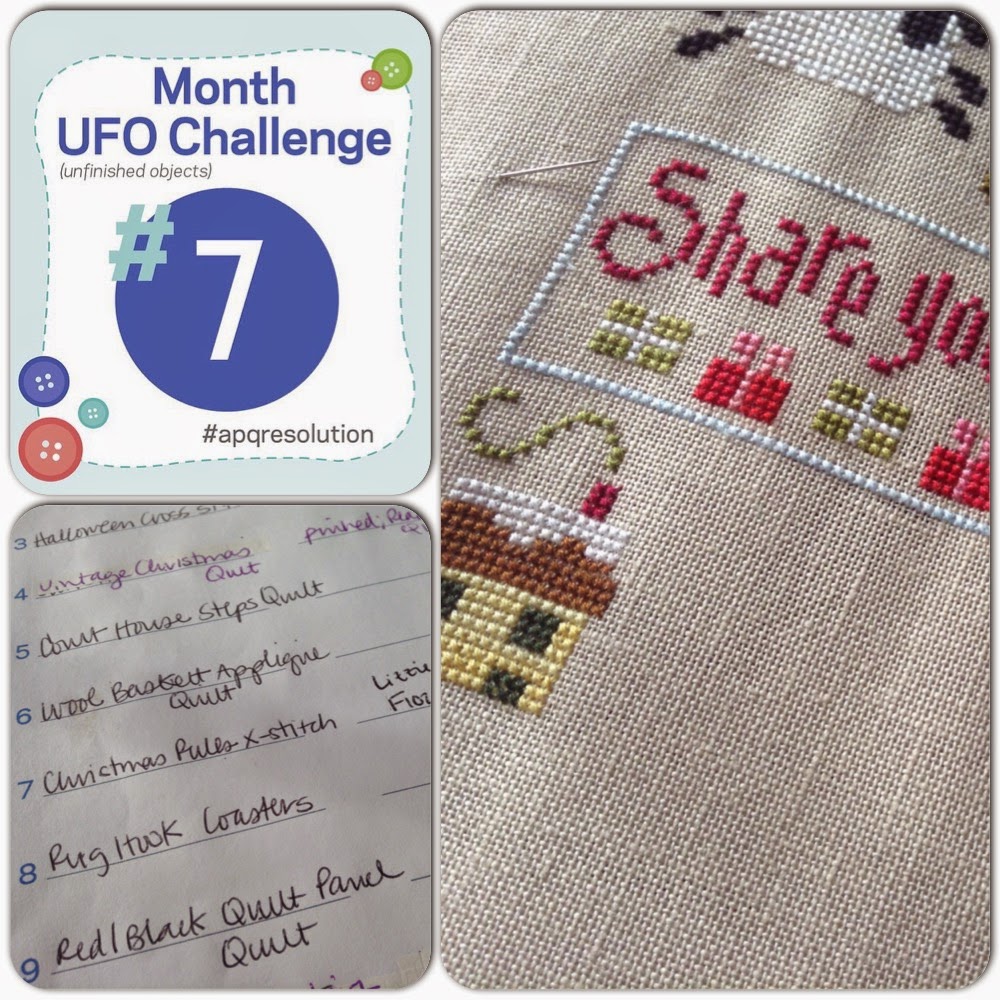 Month
UFO Challenge
(unfinished objects)
#7
#apqresolution
Share
3 Halloween Cross
pinned,
4 Vintage Christmas
Quilt
5 Court House Steps Quilt
6 Wool Baskett Applique
Quilt
7 Christmas Rules X-stitch
8 Rug Hook Coasters
9 Red/Black Quilt Panel
Quilt